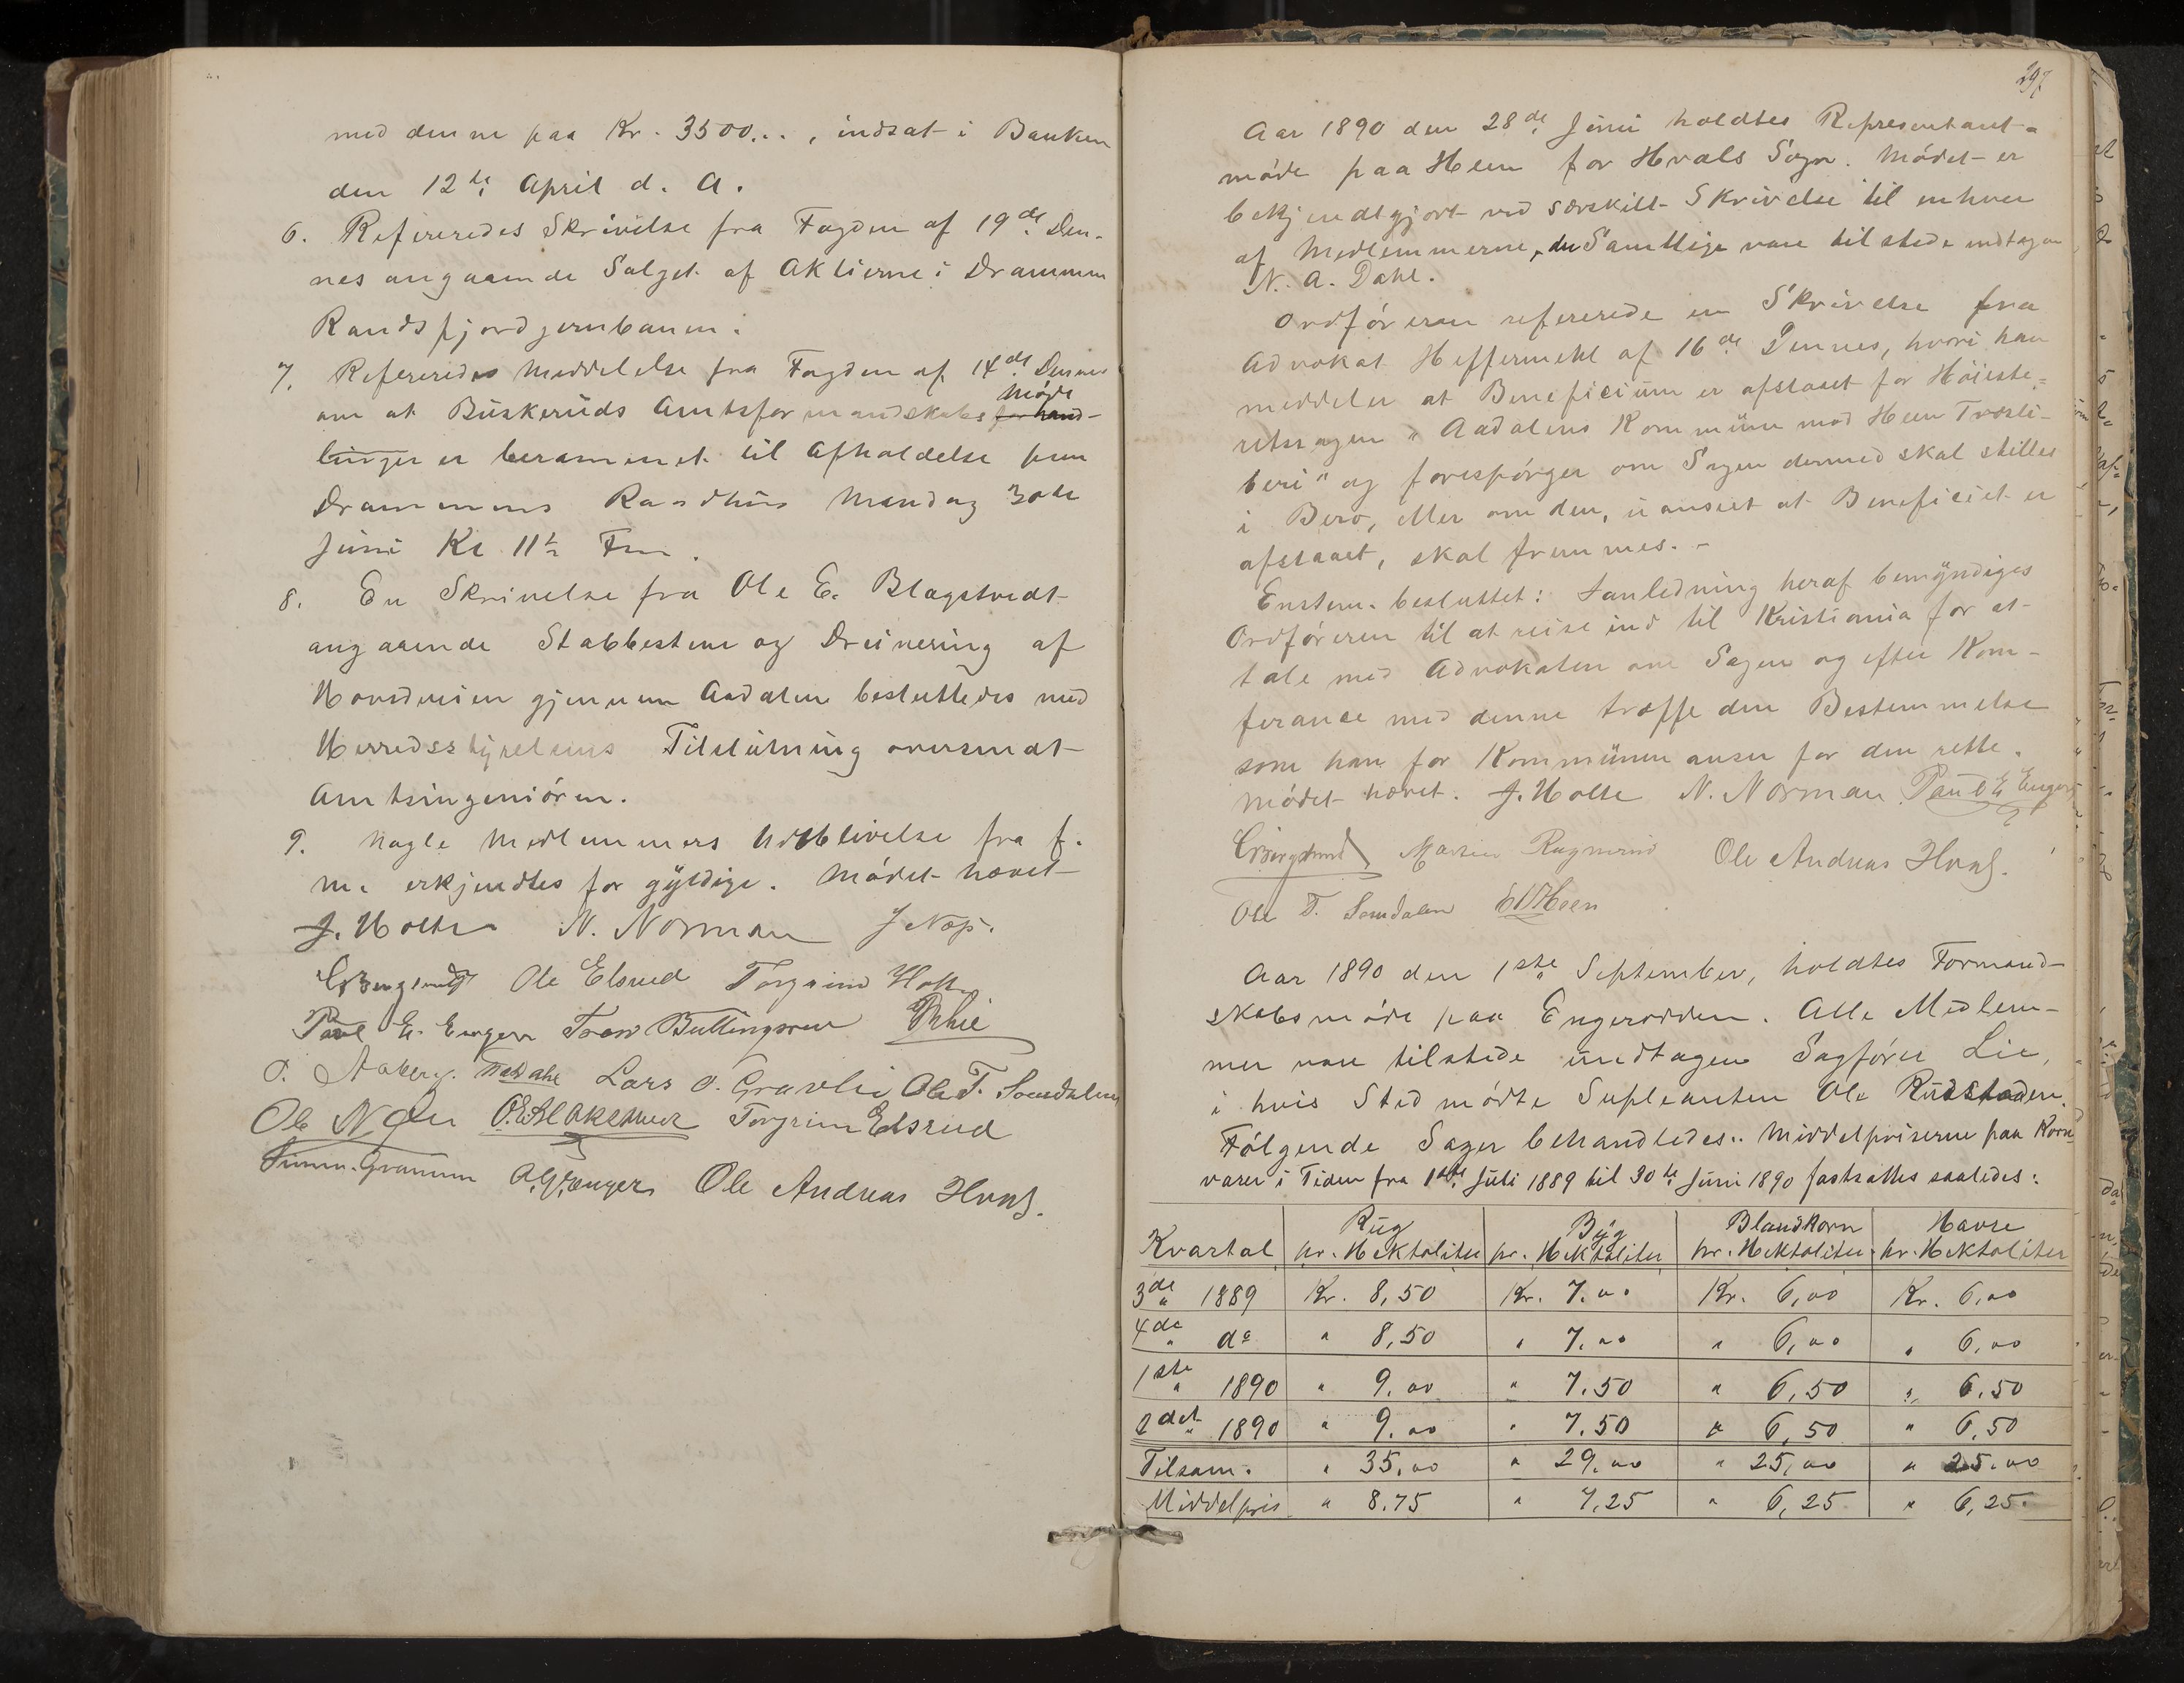 med denne paa Kr. 3500..., indsat i Banken
den 12te April d. A.
6. Refereredes Skrivelse fra Fogden af 19de Den-
nes angaaende Salget af Aktierne i Drammen
Randsfjordjernbanen.
7. Refereredes Meddelelse fra Fogden af 14de Dennes
om at Buskeruds Amtsformandskabs møde forhand-
linger er berammet til Afholdelse paa
Drammens Raadhus Mandag 30te
Juni Kl 11½ Fm.
8. En Skrivelse fra Ole E. Blagstvedt
angaaende Stabbestene og Dreinering af
Hovedveien gjennem Aadalen besluttedes med
Herredsstyrelsens Tilslutning oversendt
Amtsingeniøren.
9. Nogle Medlemmers Udeblivelse fra f.
m. erkjendtes for gyldige. Mødet hævet
J. Holte N. Norman J Næs.
Ole Elsrud Torgrim Holte
Paul E. Enger Tron Buttingsrud
O. Aaberg. Lars O. Gravli Ole T. Somdalen
Ole N Torgrim Elsrud
Simen. Gramum Ole Andreas Hval.
297
Aar 1890 den 28de Juni holdtes Representant-
møde paa Heen for Hvals Sogn. Mødet er
bekjendtgjort ved særskilt Skrivelse til enhver
af Medlemmerne, der Samtlige vare tilstede undtagen
N. A. Dahl.
Ordføreren refererede en Skrivelse fra
Advokat Heffermehl af 16de Dennes, hvori han
meddeler at Beneficium er afslaaet for Høieste-
retssagen "Aadalens Kommune mod Heen Træsli-
beri" og forespørger om Sagen dermed skal stilles
i Bero, eller om den, uanseet at Beneficiet er
afslaaet, skal fremmes. -
Enstem. besluttet: I anledning heraf bemyndiges
Ordføreren til at reise ind til Kristiania for at
tale med Advokaten om Sagen og efter Kon-
ferance med denne træffe den Bestemmelse
som han for Kommunen anser for den rette.
Mødet hævet. J. Holte N. Norman Paul E Enger
Martin Ole Andreas Hval.
Ole T. Somdalen
Aar 1890 den 1ste September, holdtes Formand-
skabsmøde paa Engerodden. Alle Medlem-
mer vare tilstede undtagen Sagfører Lie,
i hvis Sted mødte Supleanten Ole Rudstaden.
Følgende Sager behandledes: Middelpriserne paa Korn-
varer i Tiden fra 1ste Juli 1889 til 30te Juni 1890 fastsattes saaledes:
Kvartal Rug pr. Hektoliter Byg pr. Hektoliter Blandkorn pr. Hektoliter Havre pr. Hektoliter
3de " 1889 Kr. 8,50 Kr. 7.00 Kr. 6,00 Kr. 6,00
4de " do " 8,50 " 7.00 " 6,00 " 6,00
1ste " 1890 " 9.00 " 7.50 " 6,50 " 6.50
2det " 1890 " 9.00 " 7.50 " 6,50 " 6,50
Tilsam. " 35,00 " 29.00 " 25,00 " 25.00
Middelpris " 8.75 " 7,25 " 6,25 " 6,25